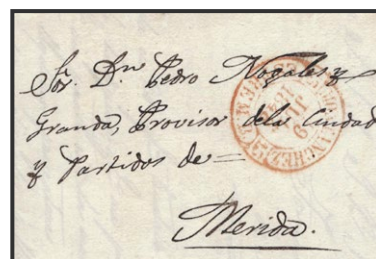 Sor. Dn. Pedro Nogales y
Granda, Provisor dela Ciudad
y Partidos de =
Merida.